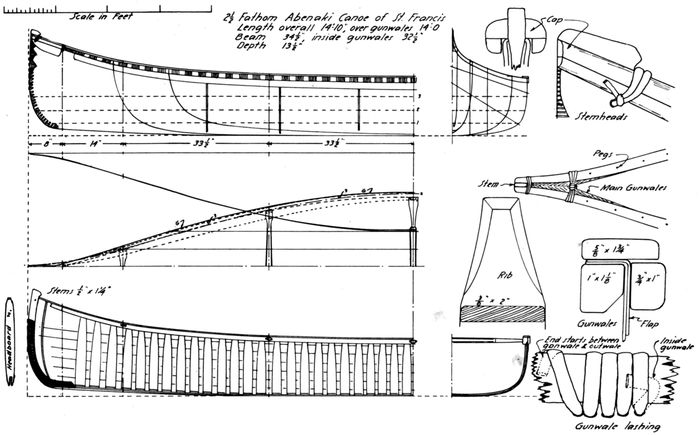 Scale in Feet
2½ Fathom Abenaki Canoe of St. Francis
Length overall 14'10", over gunwales 14'0
Beam 34½", inside gunwales 32½"
Depth 13½"
Cap
Stemheads
3
2
1
8"
14"
33½"
33½"
Pegs
Stem
Main Gunwales
Rib
⅜" x 2"
⅝" x 1¾"
1" x 1⅛"
¾" x 1"
Gunwales
Flap
Stems ½" x 1¼"
Headboard
End starts between
gunwale & outwale
Inside
gunwale
Gunwale lashing